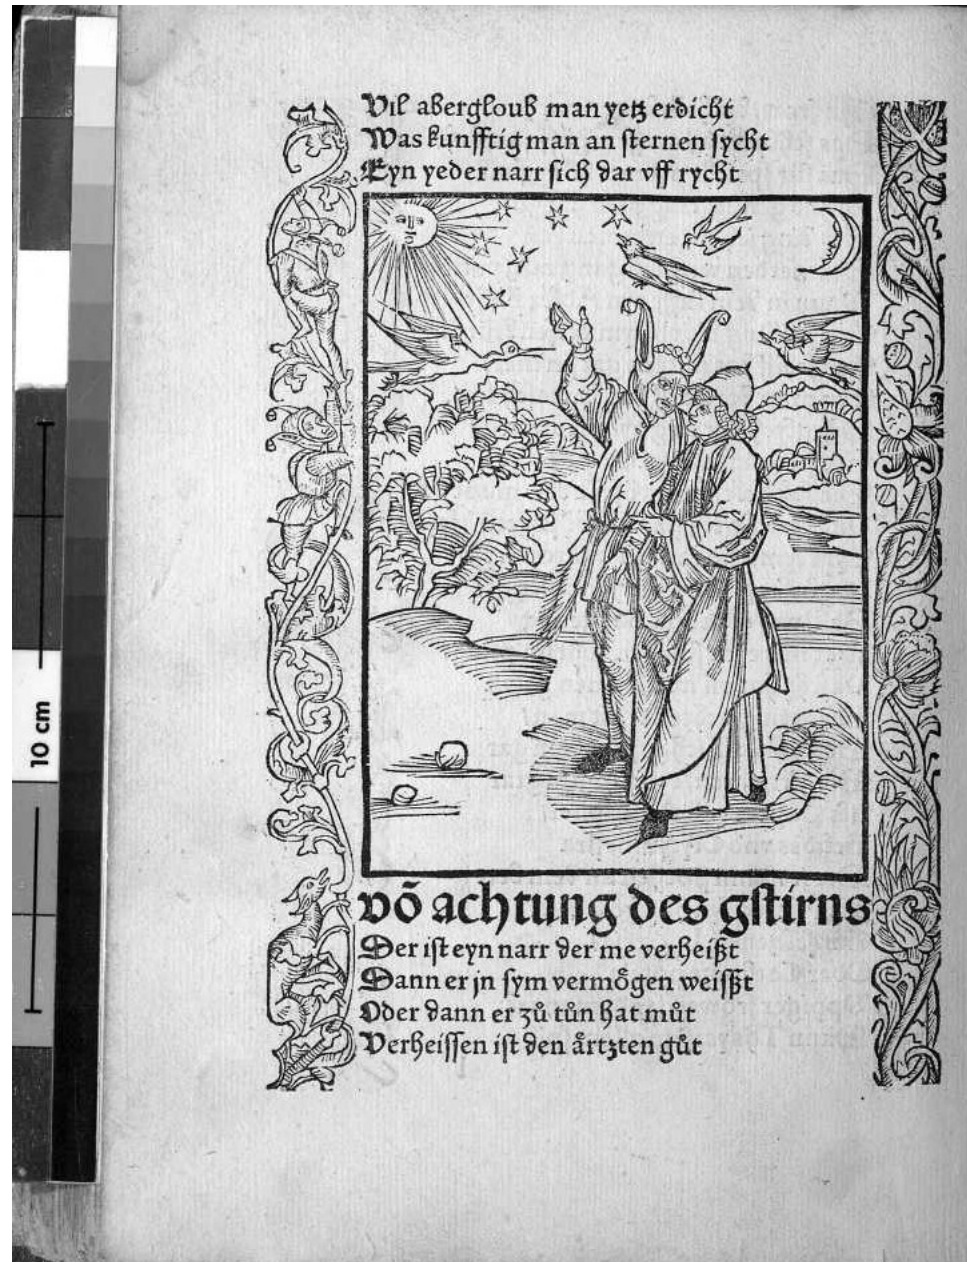 Vil abergloub man yetz erdicht
Was kunfftig man an sternen sycht
Eyn yeder narr sich dar vff rycht
võ achtung des gstirns
Der ist eyn narr der me verheißt
Dann er jn sym vermoͤgen weisßt
Oder dann er zuͦ tuͦn hat muͦt
Verheissen ist den aͤrtzten guͦt
10 cm